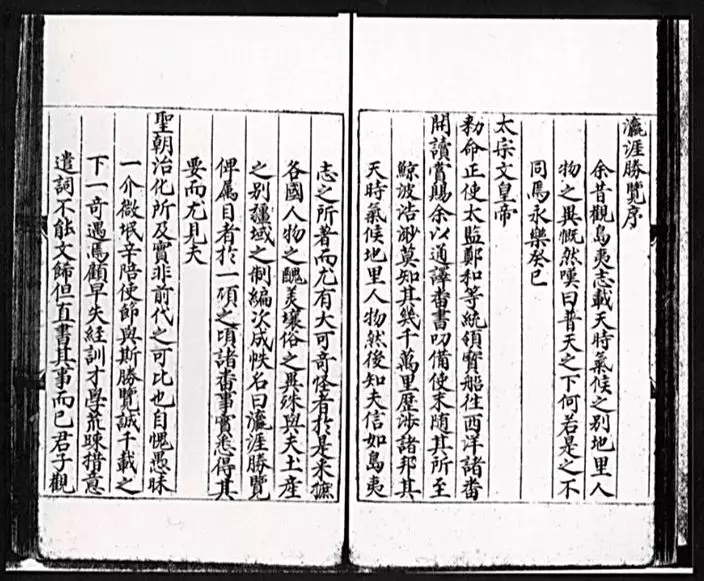 瀛涯勝覽序
余昔觀島夷志載天時氣候之別地里人
物之異慨然嘆曰普天之下何若是之不
同焉永樂癸巳
太宗文皇帝
勑命正使太監鄭和等統領寳船往西洋諸番
開讀賞賜余以通譯番書叨備使末隨其所至
鯨波浩渺莫知其幾千萬里歷涉諸邦其
天時氣候地里人物然後知夫信如島夷
志之所著而尤有大可奇怪者於是采摭
各國人物之醜美壤俗之異殊與夫土産
之別疆域之制編次成帙名曰瀛涯勝覽
俾属目者於一頃之頃諸番事實悉得其
要而尤見夫
聖朝治化所及實非前代之可比也自愧愚昧
一介微氓辛陪使節與斯勝覽誠千載之
下一奇遇焉顧早失經訓才學荒踈措意
遣詞不能文餙但直書其事而已君子觀